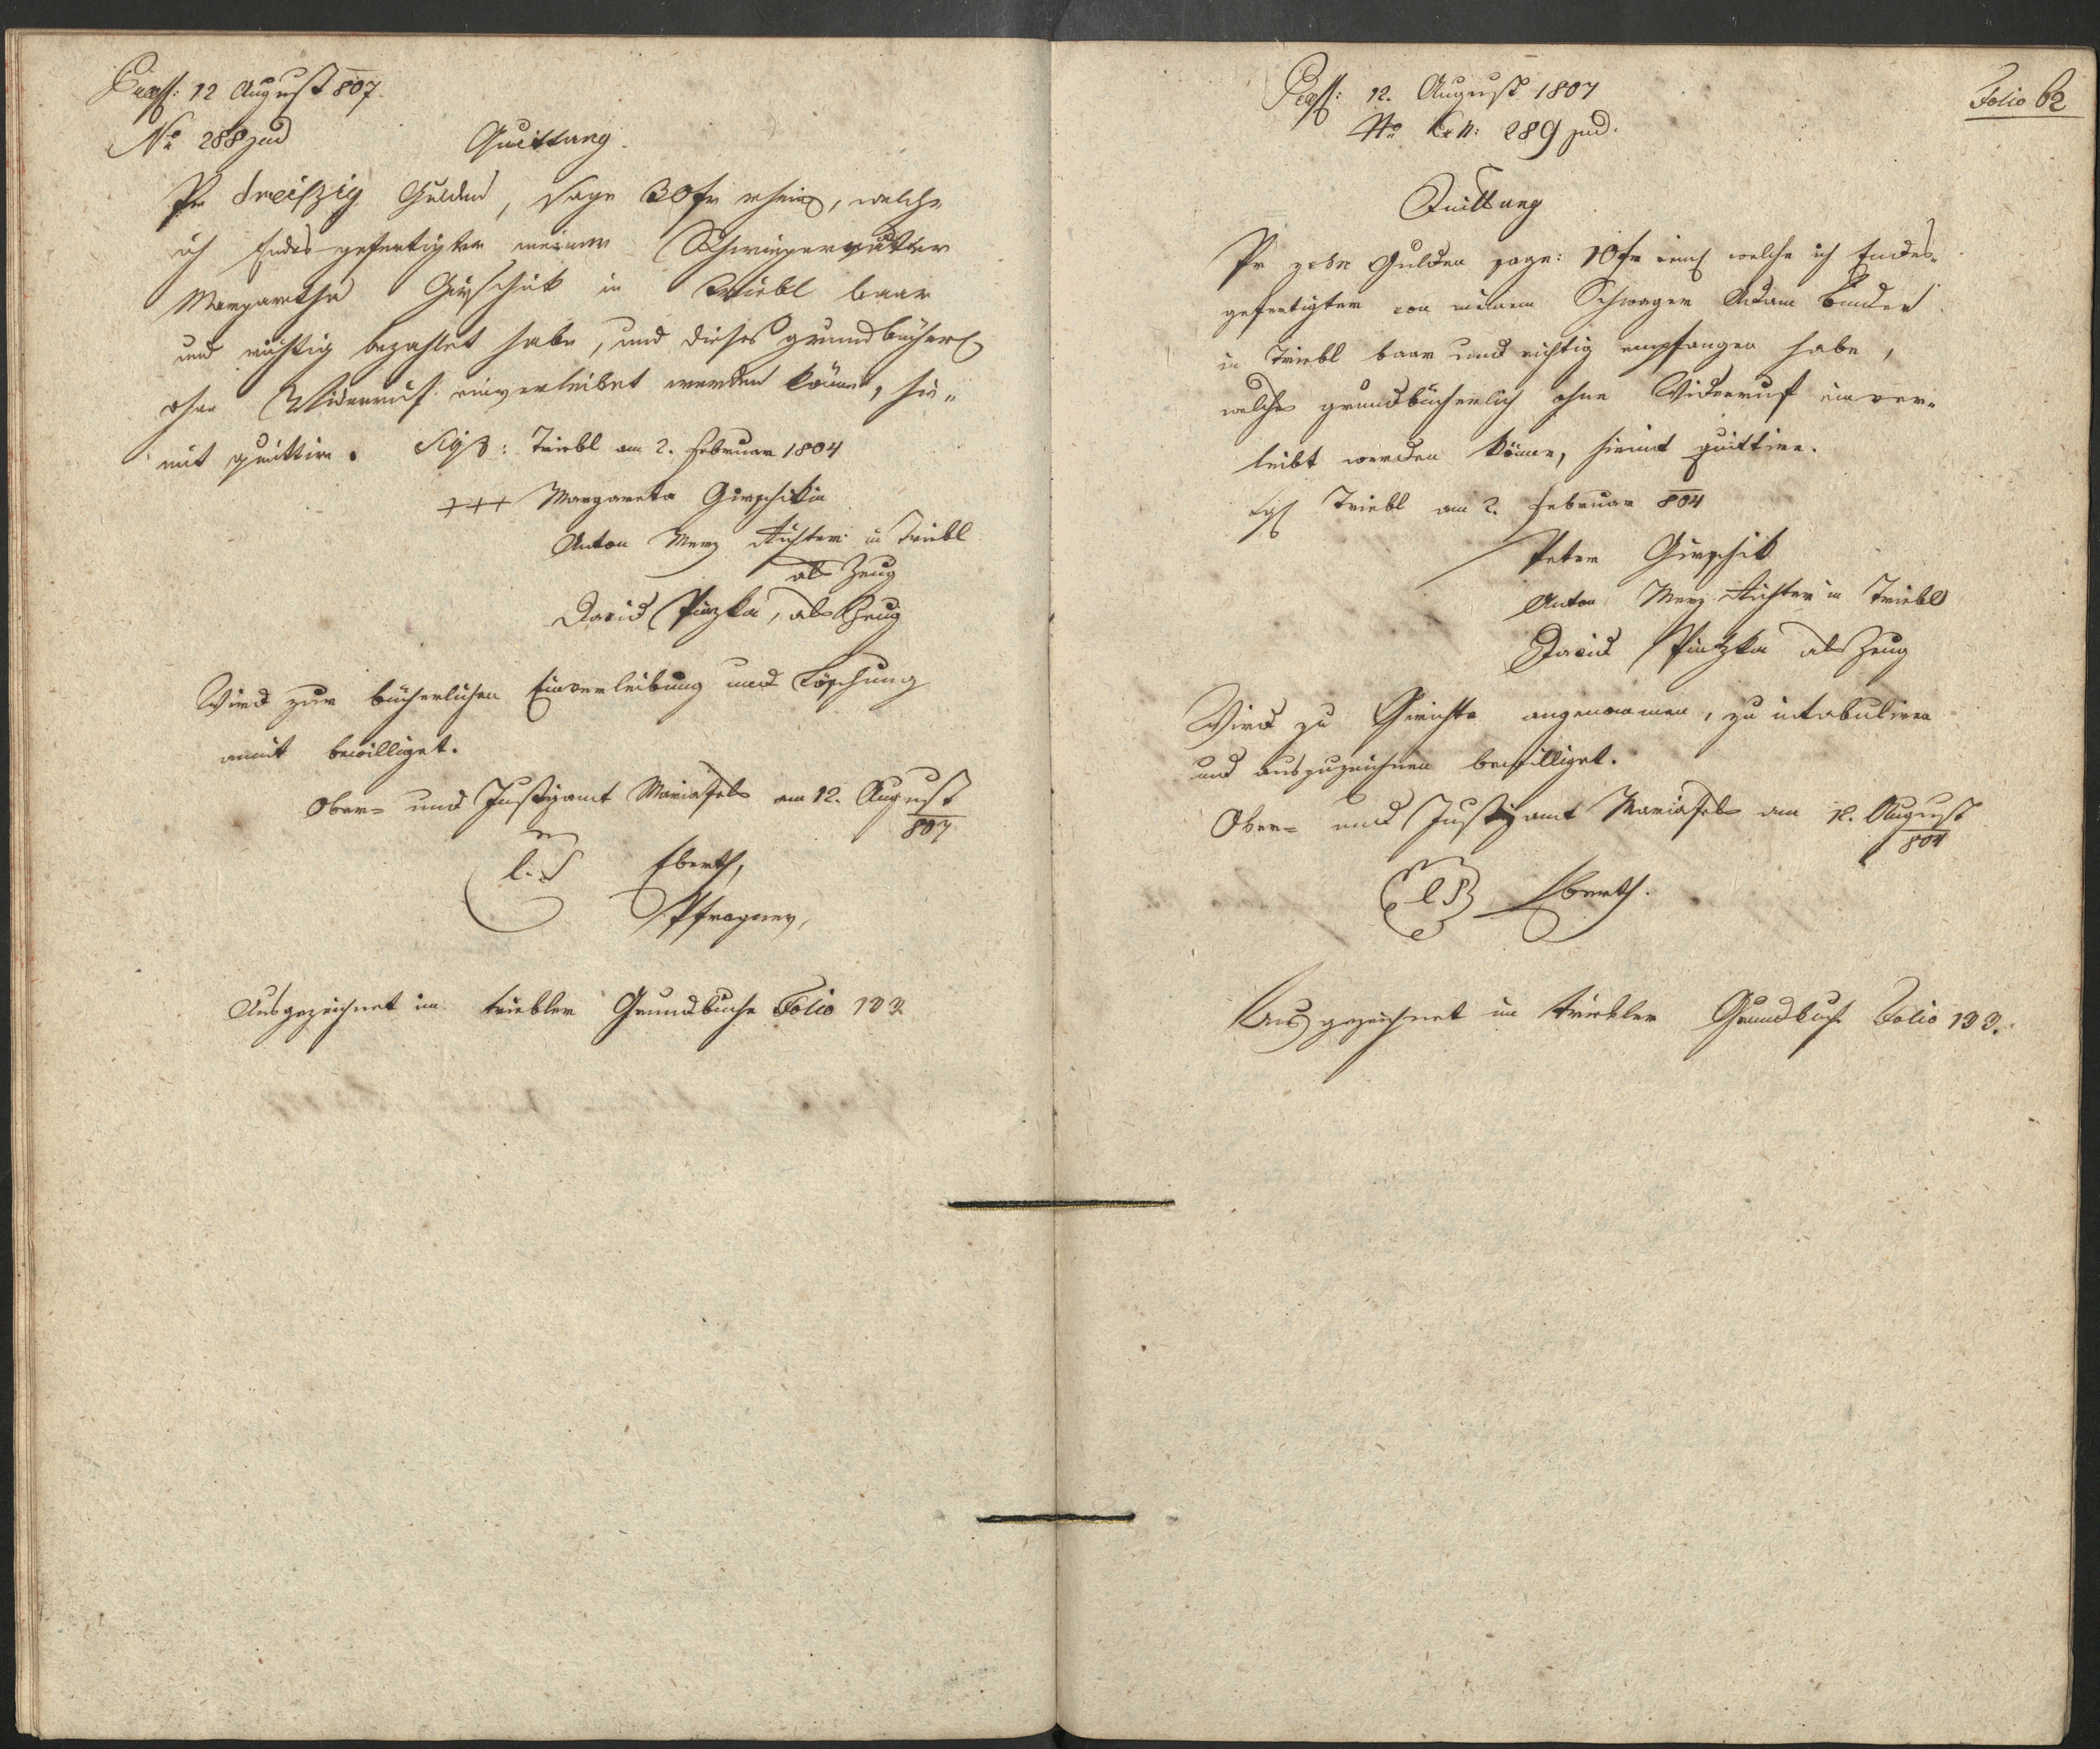 Praess: 12 August 807.
No 288 jud
Quittung.
Pr dreißzig Gulden, sage 30 fr rhein, welche
ich Endesgefertigter meiner Schwiegermutter
Margaretha Girschik in Triebl baar
und richtig bezahlet habe, und dieses grundbücherl.
ohne Widerruf einverleibet werden könne, hie-
mit quittire. Sig: Triebl am 2. Februar 1804
+++ Margareta Girschikin
Anton Merz Richter in Triebl
als Zeug
David Pinzka, als Zeug
Wird zur bücherlichen Einverleibung und Löschung
anmit bewilliget.
Ober- und Justizamt Mariafels am 12. August
807
L. S Eberth,
Pfragner,
Ausgezeichnet im triebler Grundbuche Folio 133
Folio 62
Praess: 12. August 1807
No 289 jud.
Quittung
Pr zehn Gulden sage: 10 fr rein welche ich Endes-
gefertigter von meinem Schwager Adam Binder
in Triebl baar und richtig empfangen habe,
welche grundbücherlich ohne Widerruf einver-
leibt werden könne, hiemit quittire.
Sig Triebl am 2. Februar 804
Peter Girschik
Anton Merz Richter in Triebl
David Pinzka als Zeug
Wird zu Gerichte angenommen, zu intabuliren
und auszuzeichnen bewilliget.
Ober- und Justizamt Mariafels am 12. August
807
L S Eberth.
Ausgezeichnet im triebler Grundbuch Folio 133.